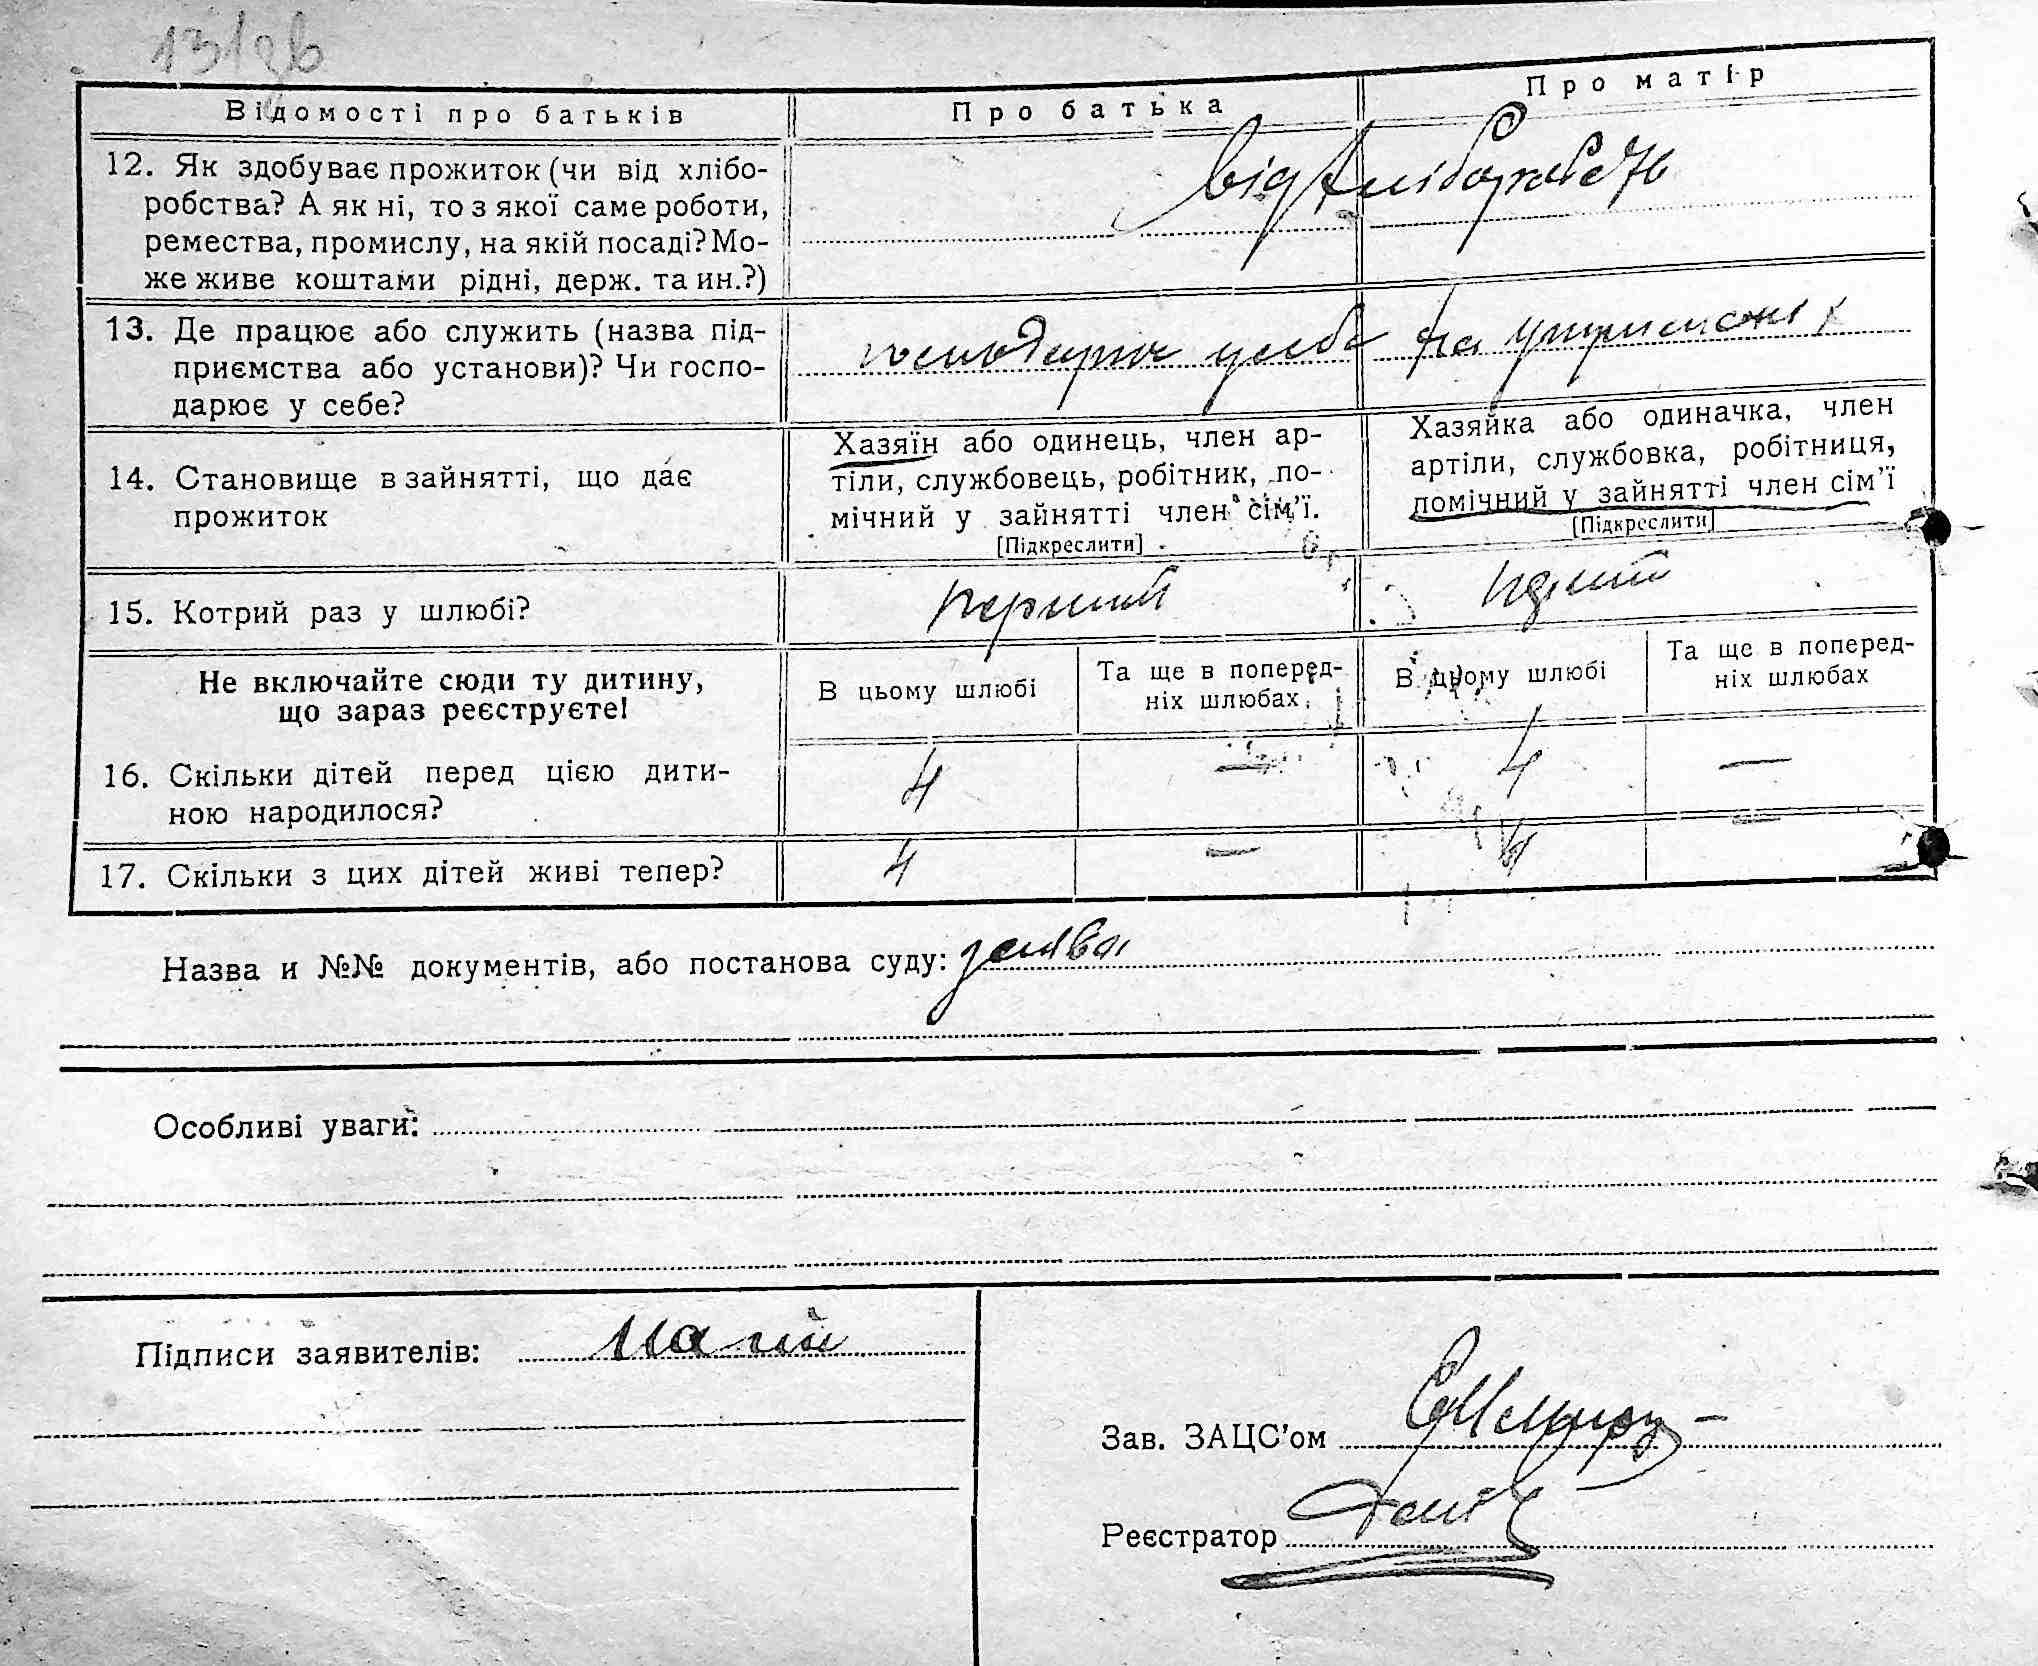 13/зв
Відомості про батьків
Про батька
Про матір
12. Як здобуває прожиток (чи від хлібо-
робства? А як ні, то з якої саме роботи,
ремества, промислу, на якій посаді? Мо-
же живе коштами рідні, держ. та ин.?)
від
13. Де працює або служить (назва під-
приємства або установи)? Чи госпо-
дарює у себе?
господарює у себе
на
14. Становище в зайнятті, що дає
прожиток
Хазяїн або одинець, член ар-
тіли, службовець, робітник, по-
мічний у зайнятті член сім'ї.
[Підкреслити]
Хазяйка або одиначка, член
артіли, службовка, робітниця,
помічний у зайнятті член сім'ї
[Підкреслити]
15. Котрий раз у шлюбі?
перший
Не включайте сюди ту дитину,
що зараз реєструєте!
В цьому шлюбі
Та ще в поперед-
ніх шлюбах
В цьому шлюбі
Та ще в поперед-
ніх шлюбах
16. Скільки дітей перед цією дити-
ною народилося?
4 — 4 —
17. Скільки з цих дітей живі тепер?
4 — 4 —
Назва и №№ документів, або постанова суду: заява
Особливі уваги:
Підписи заявителів:
Зав. ЗАЦС'ом
Реєстратор